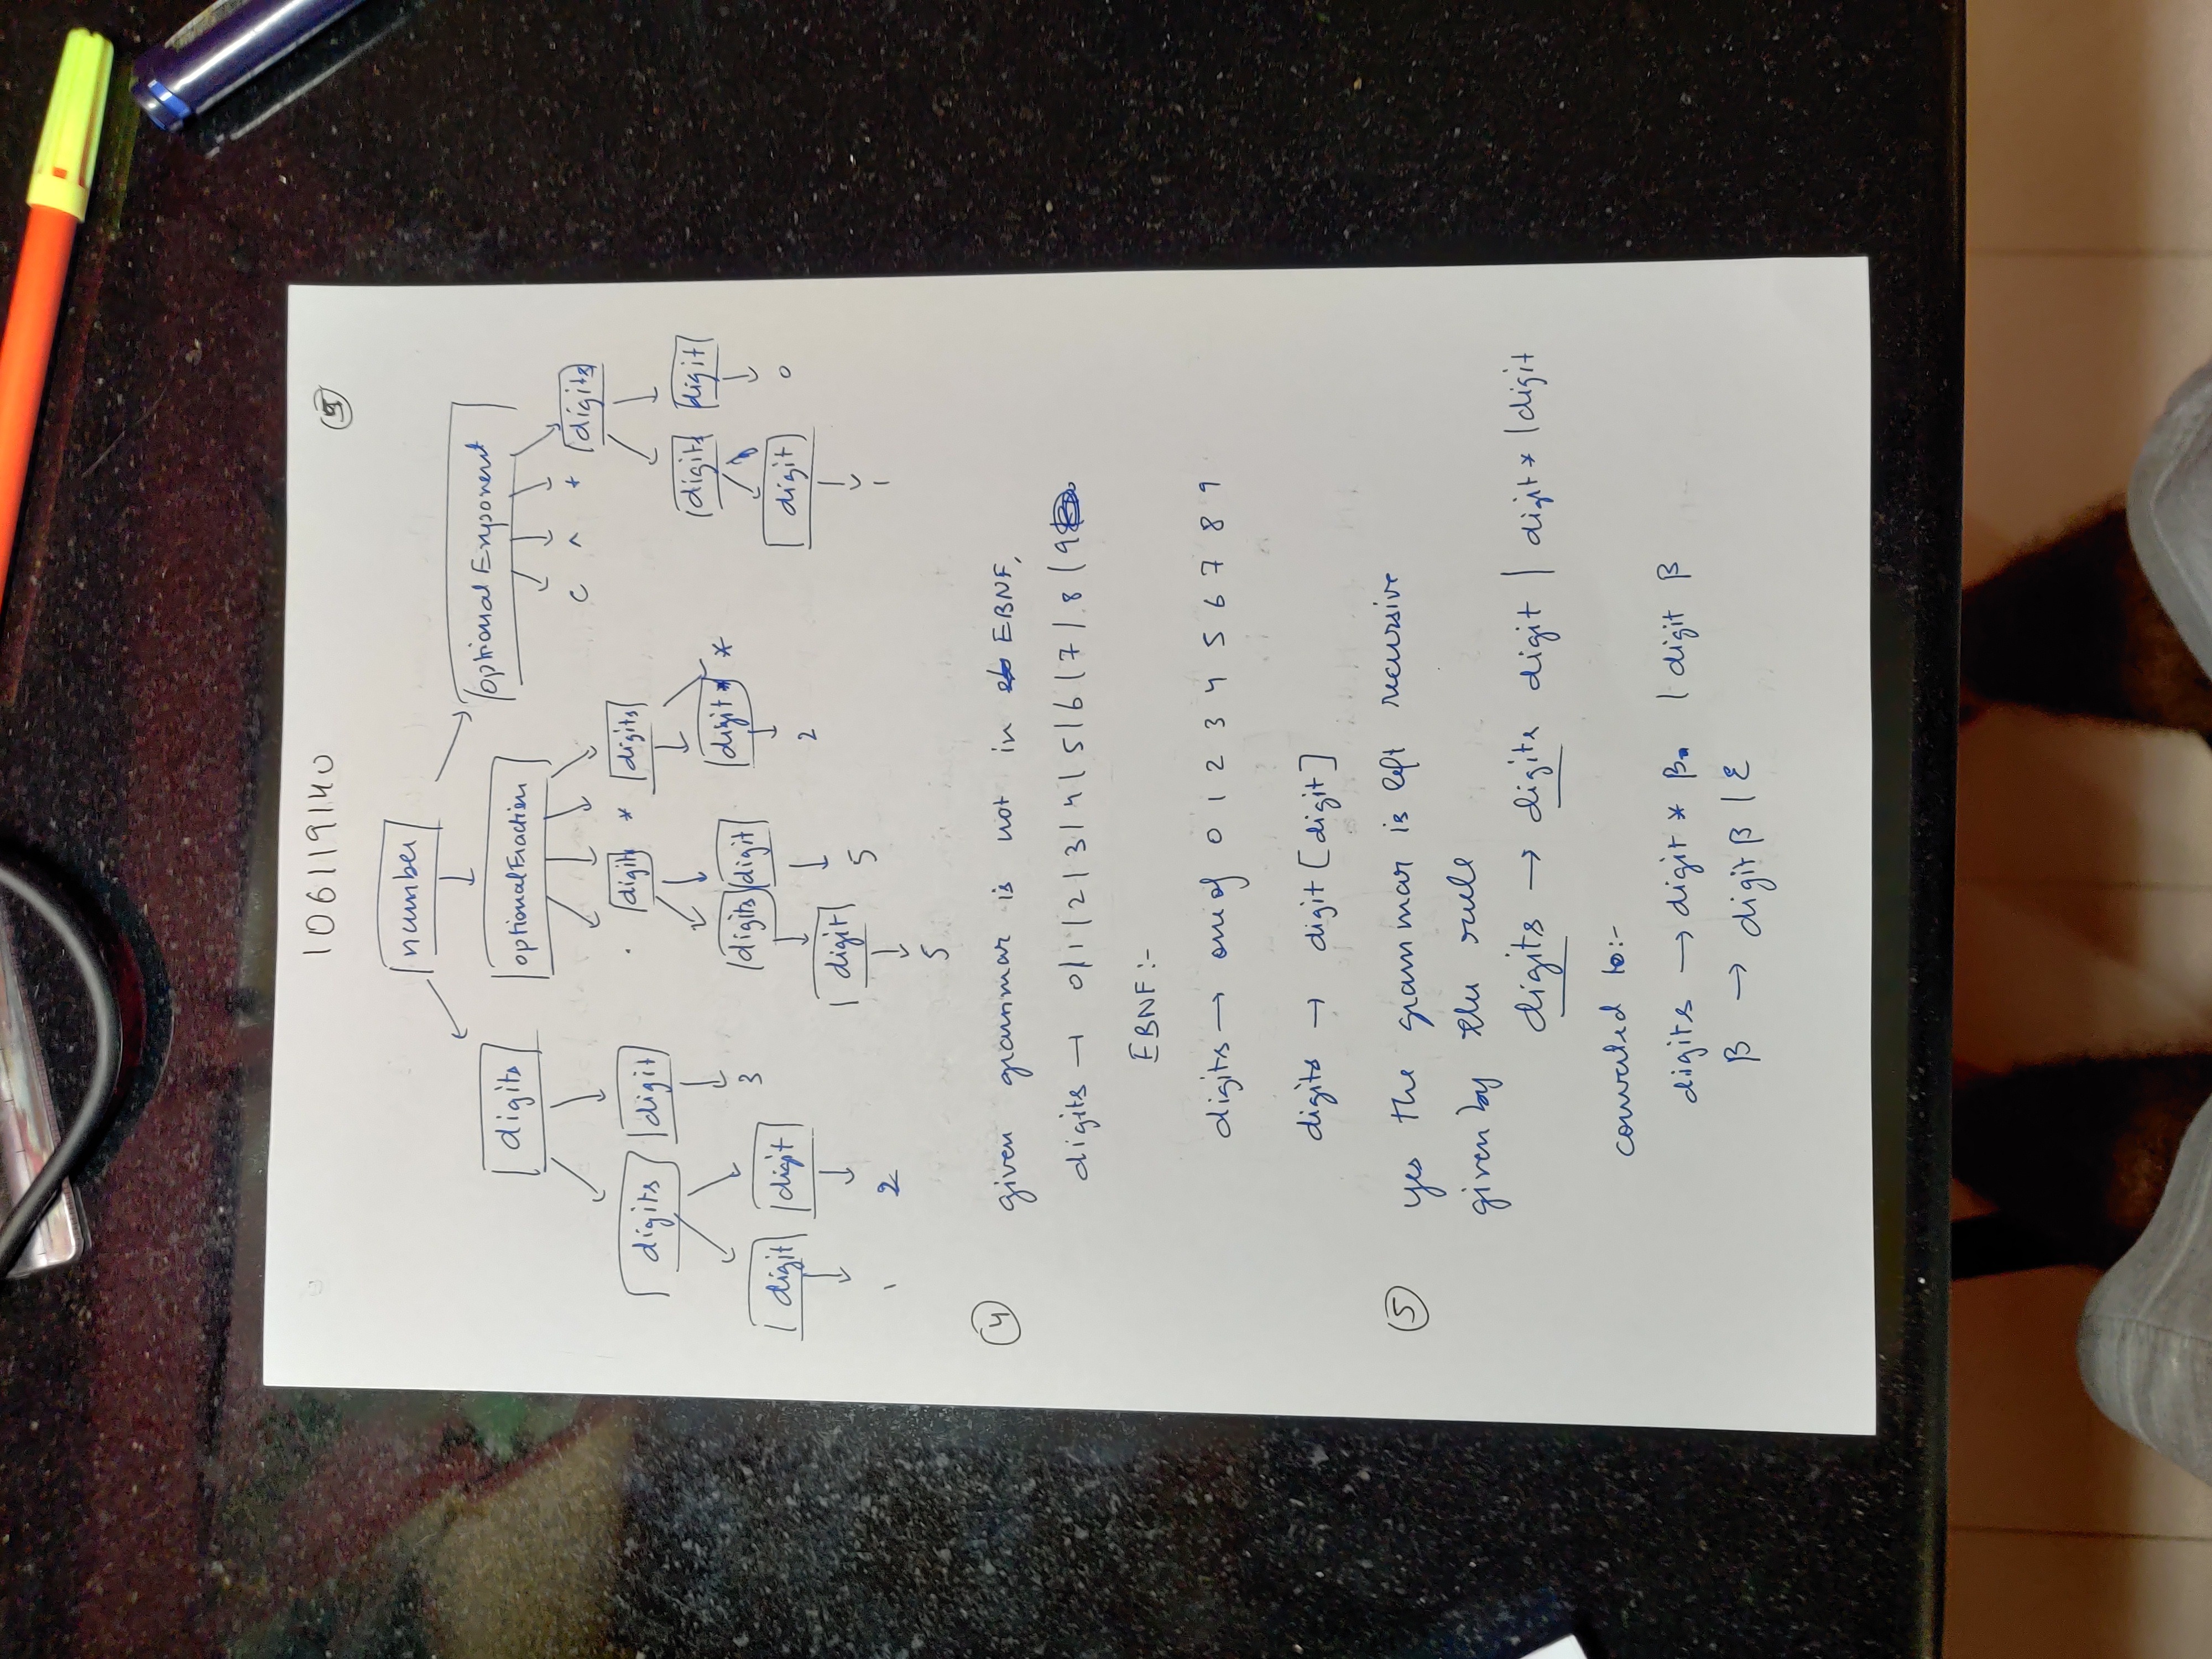 106119140
number
digits optionalFraction optionalExponent
digits digit . digits * digits c ^ + digits
digit digit 3 digits digit digit * digits digit
1 2 digit 5 2 digit 0
5 1
4 given grammar is not in EBNF,
digits → 0|1|2|3|4|5|6|7|8|9
EBNF :-
digits → one of 0 1 2 3 4 5 6 7 8 9
digits → digit [digit]
5 yes the grammar is left recursive
given by the rule
digits → digits digit | digit * | digit
converted to:-
digits → digit * β | digit β
β → digit β | ε